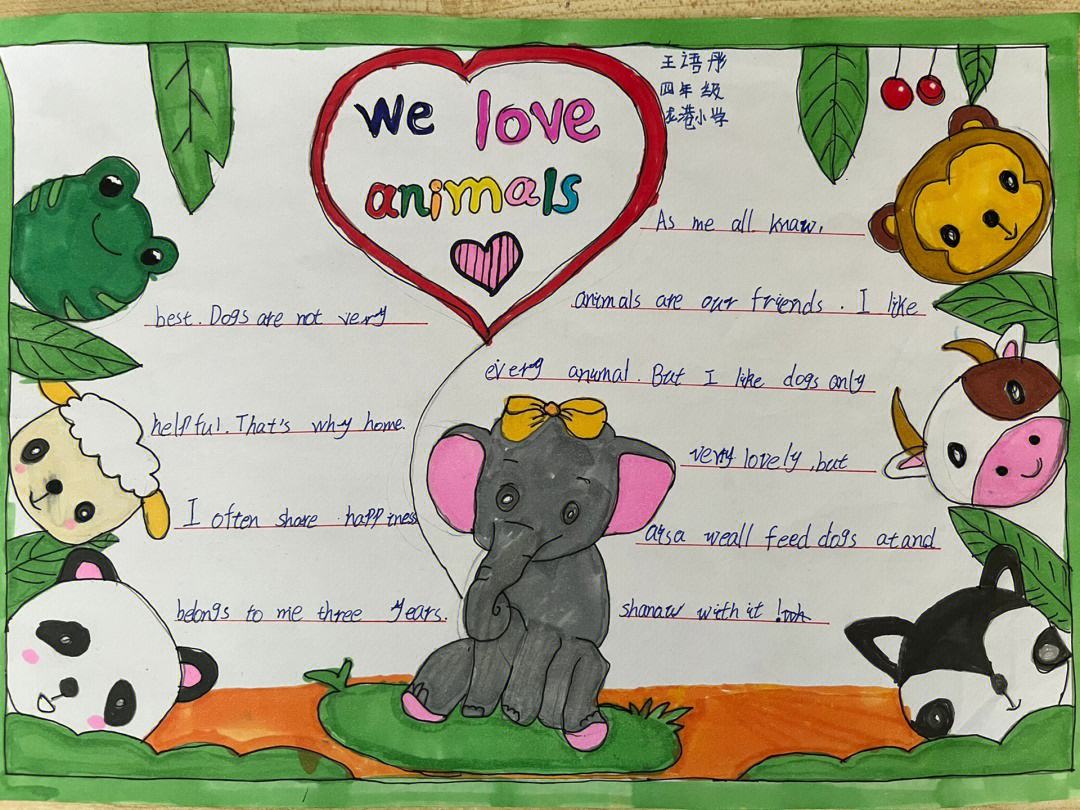 We love
animals
王语彤
四年级
龙港小学
As me all knaw,
best. Dogs are not very
animals are our friends. I like
every anumal. But I like dogs only
helpful. That's why home.
very lovely, but
I often share happiness
arsa weall feed dogs atand
belongs to me three years.
shanaw with it !